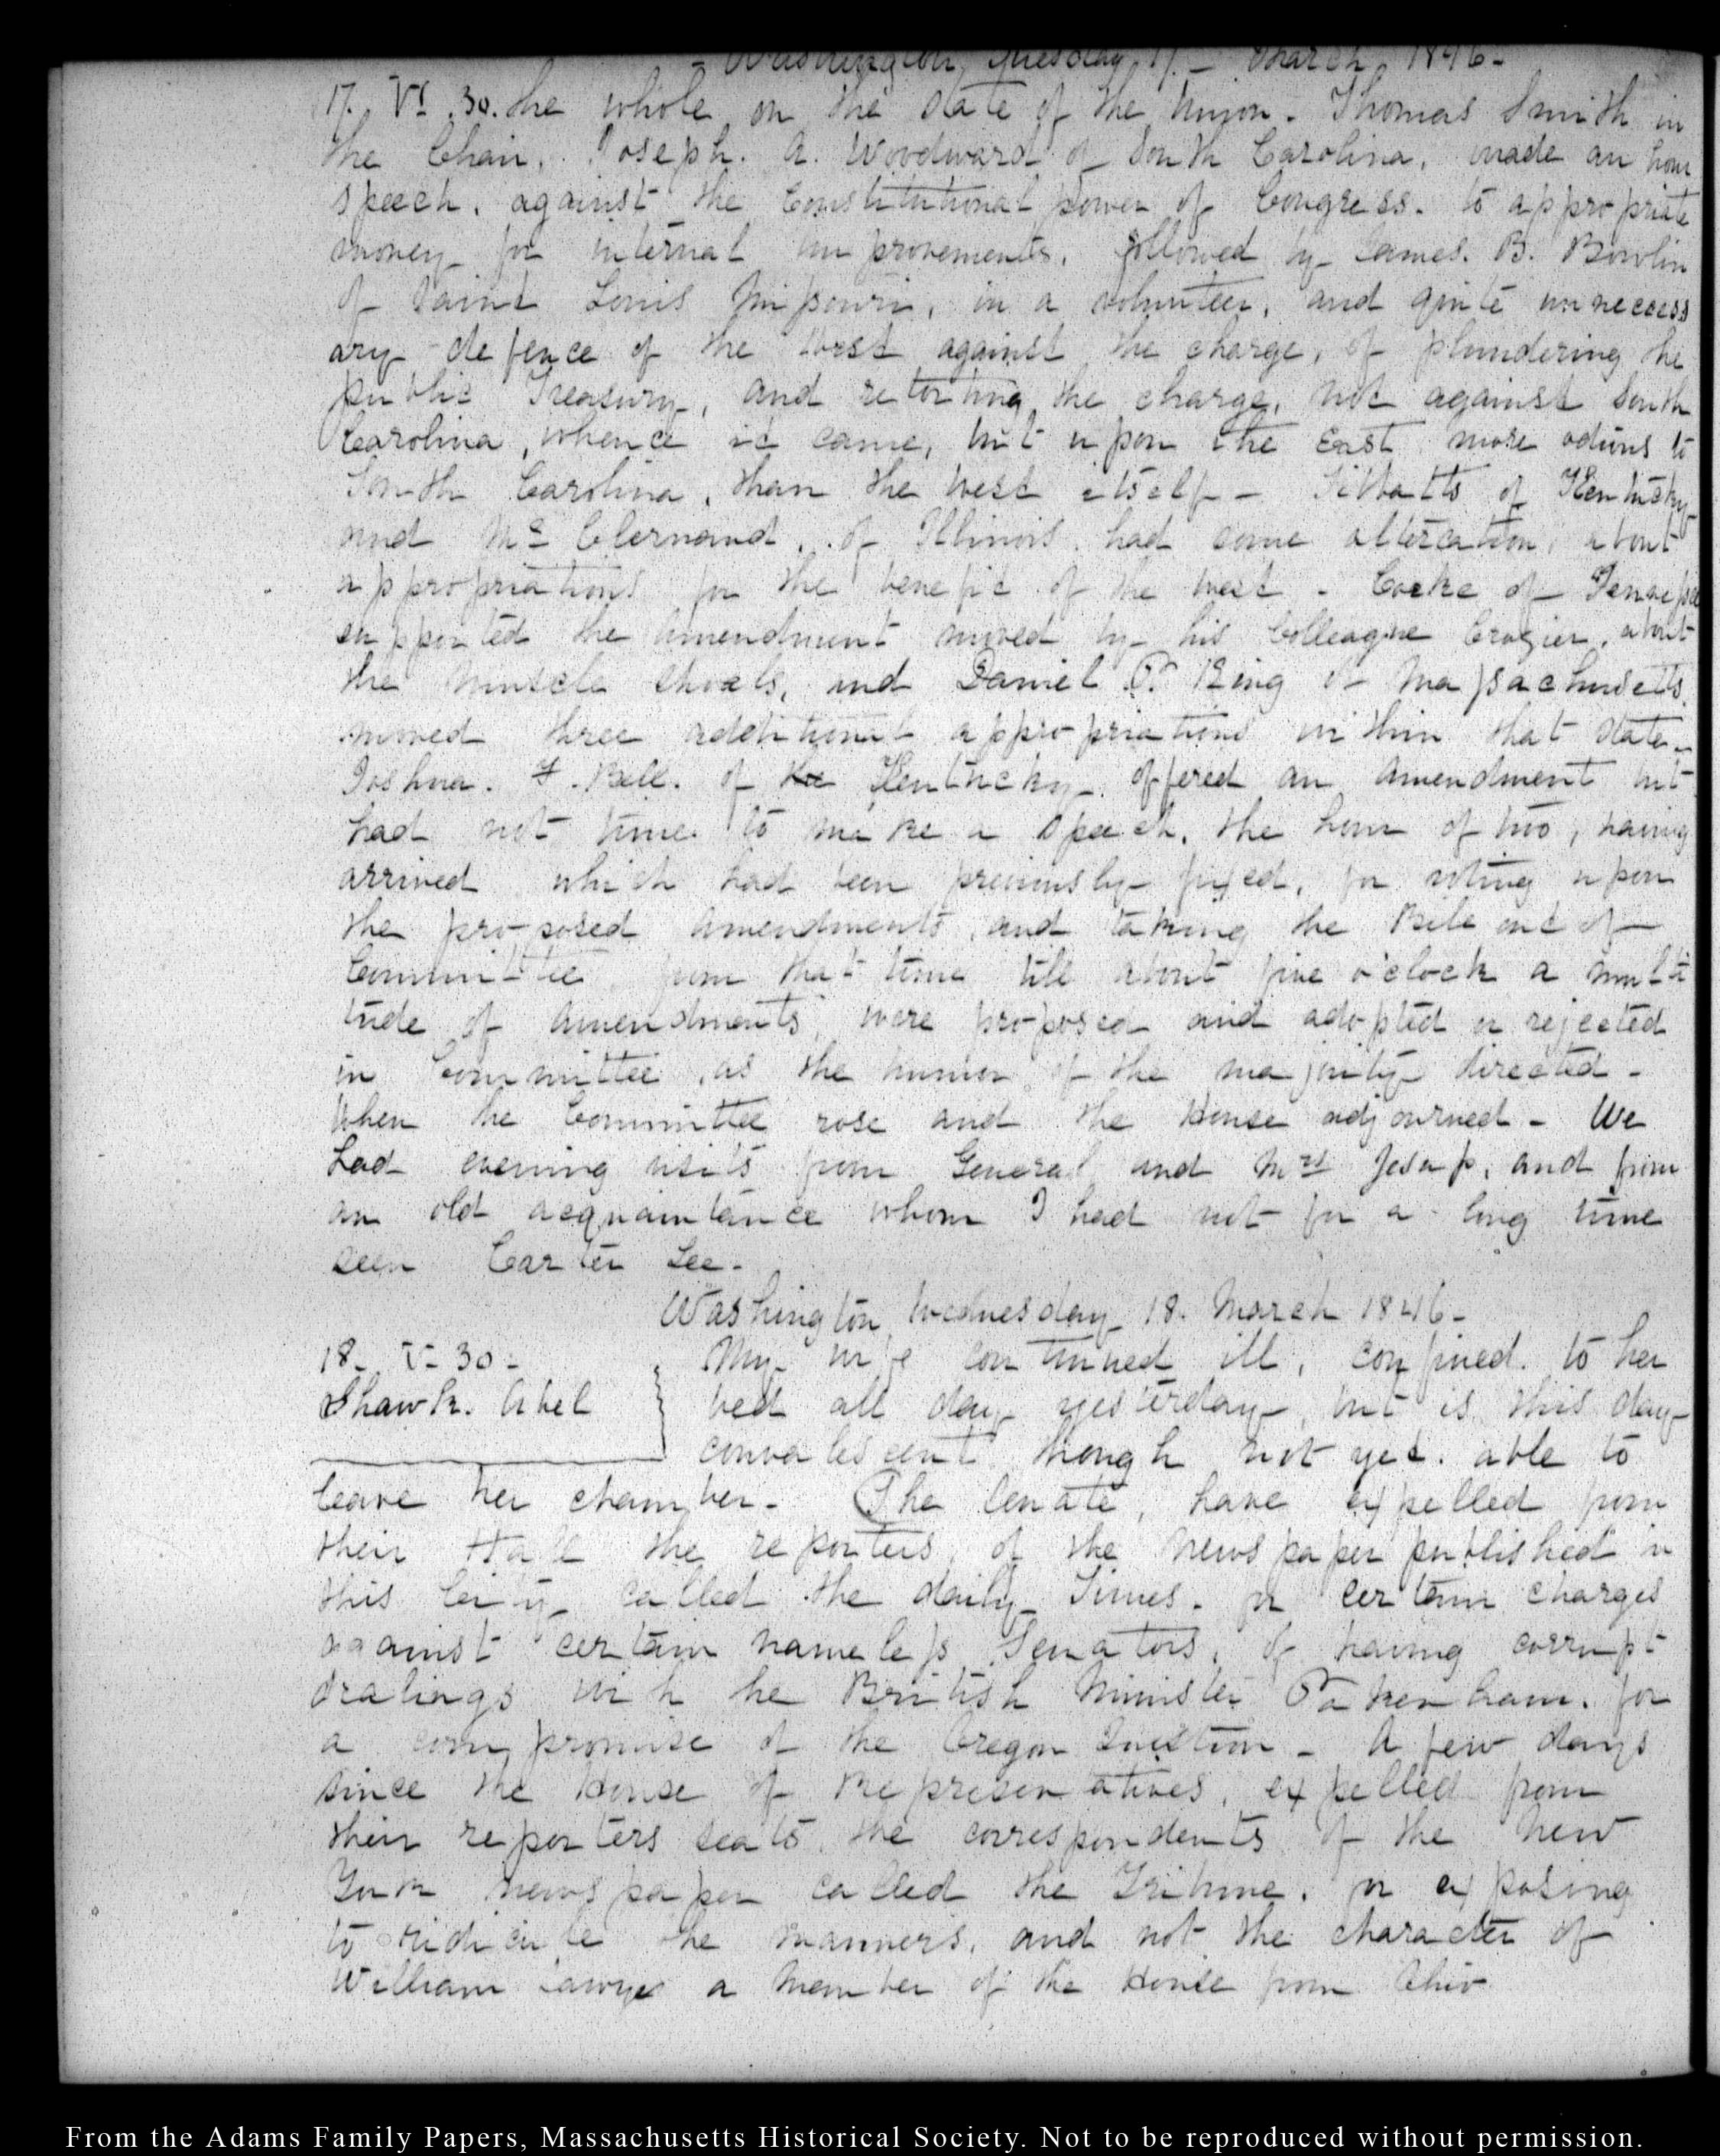 Washington, Tuesday 17. – March, 1846 –
17. VI. 30. the whole on the state of the Union. Thomas Smith in
the Chair. Joseph. A. Woodward of South Carolina, made an hour
speech, against the Constitutional power of Congress. to appropriate
money for internal improvements. followed by James. B. Bowlin
of Saint Louis Missouri, in a volunteer, and quite unnecess
ary defence of the West against the charge, of plundering the
public Treasury, and retorting the charge, not against South
Carolina, whence it came, but upon the East more odious to
South Carolina, than the West itself – Tibbatts of Kentucky
and McClernand, of Illinois, had some altercation, about
appropriations for the benefit of the West – Cocke of Tennessee
supported the amendment moved by his Colleague Crozier, about
the Muscle Shoals, and Daniel P. King of Massachusetts
moved three additional appropriations within that State –
Joshua. F. Bell. of Kentucky, offered an amendment but
had not time to make a speech, the hour of two, having
arrived which had been previously fixed, for voting upon
the proposed amendments, and taking the Bill out of
Committee from that time till about five o'clock a multi
tude of amendments, were proposed and adopted or rejected
in Committee, as the humor of the majority directed –
when the Committee rose and the House adjourned – We
had evening visits from General and Mrs Jesup, and from
an old acquaintance whom I had not for a long time
seen Carter Lee –
Washington, Wednesday 18. March 1846 –
18. V. 30 –
Shawk. Abel
My wife continued ill, confined. to her
bed all day yesterday, but is this day
convalescent though not yet. able to
leave her chamber – The Senate, have expelled from
their Hall the reporters, of the newspaper published in
this City, called the daily Times – for certain charges
against certain nameless Senators, of having corrupt
dealings with the British Minister Pakenham, for
a compromise of the Oregon Question – A few days
since the House of Representatives, expelled from
their reporters seats, the correspondents of the New
York newspaper called the Tribune, for exposing
to ridicule the manners, and not the character of
William Sawyer a member of the House from Ohio
From the Adams Family Papers, Massachusetts Historical Society. Not to be reproduced without permission.